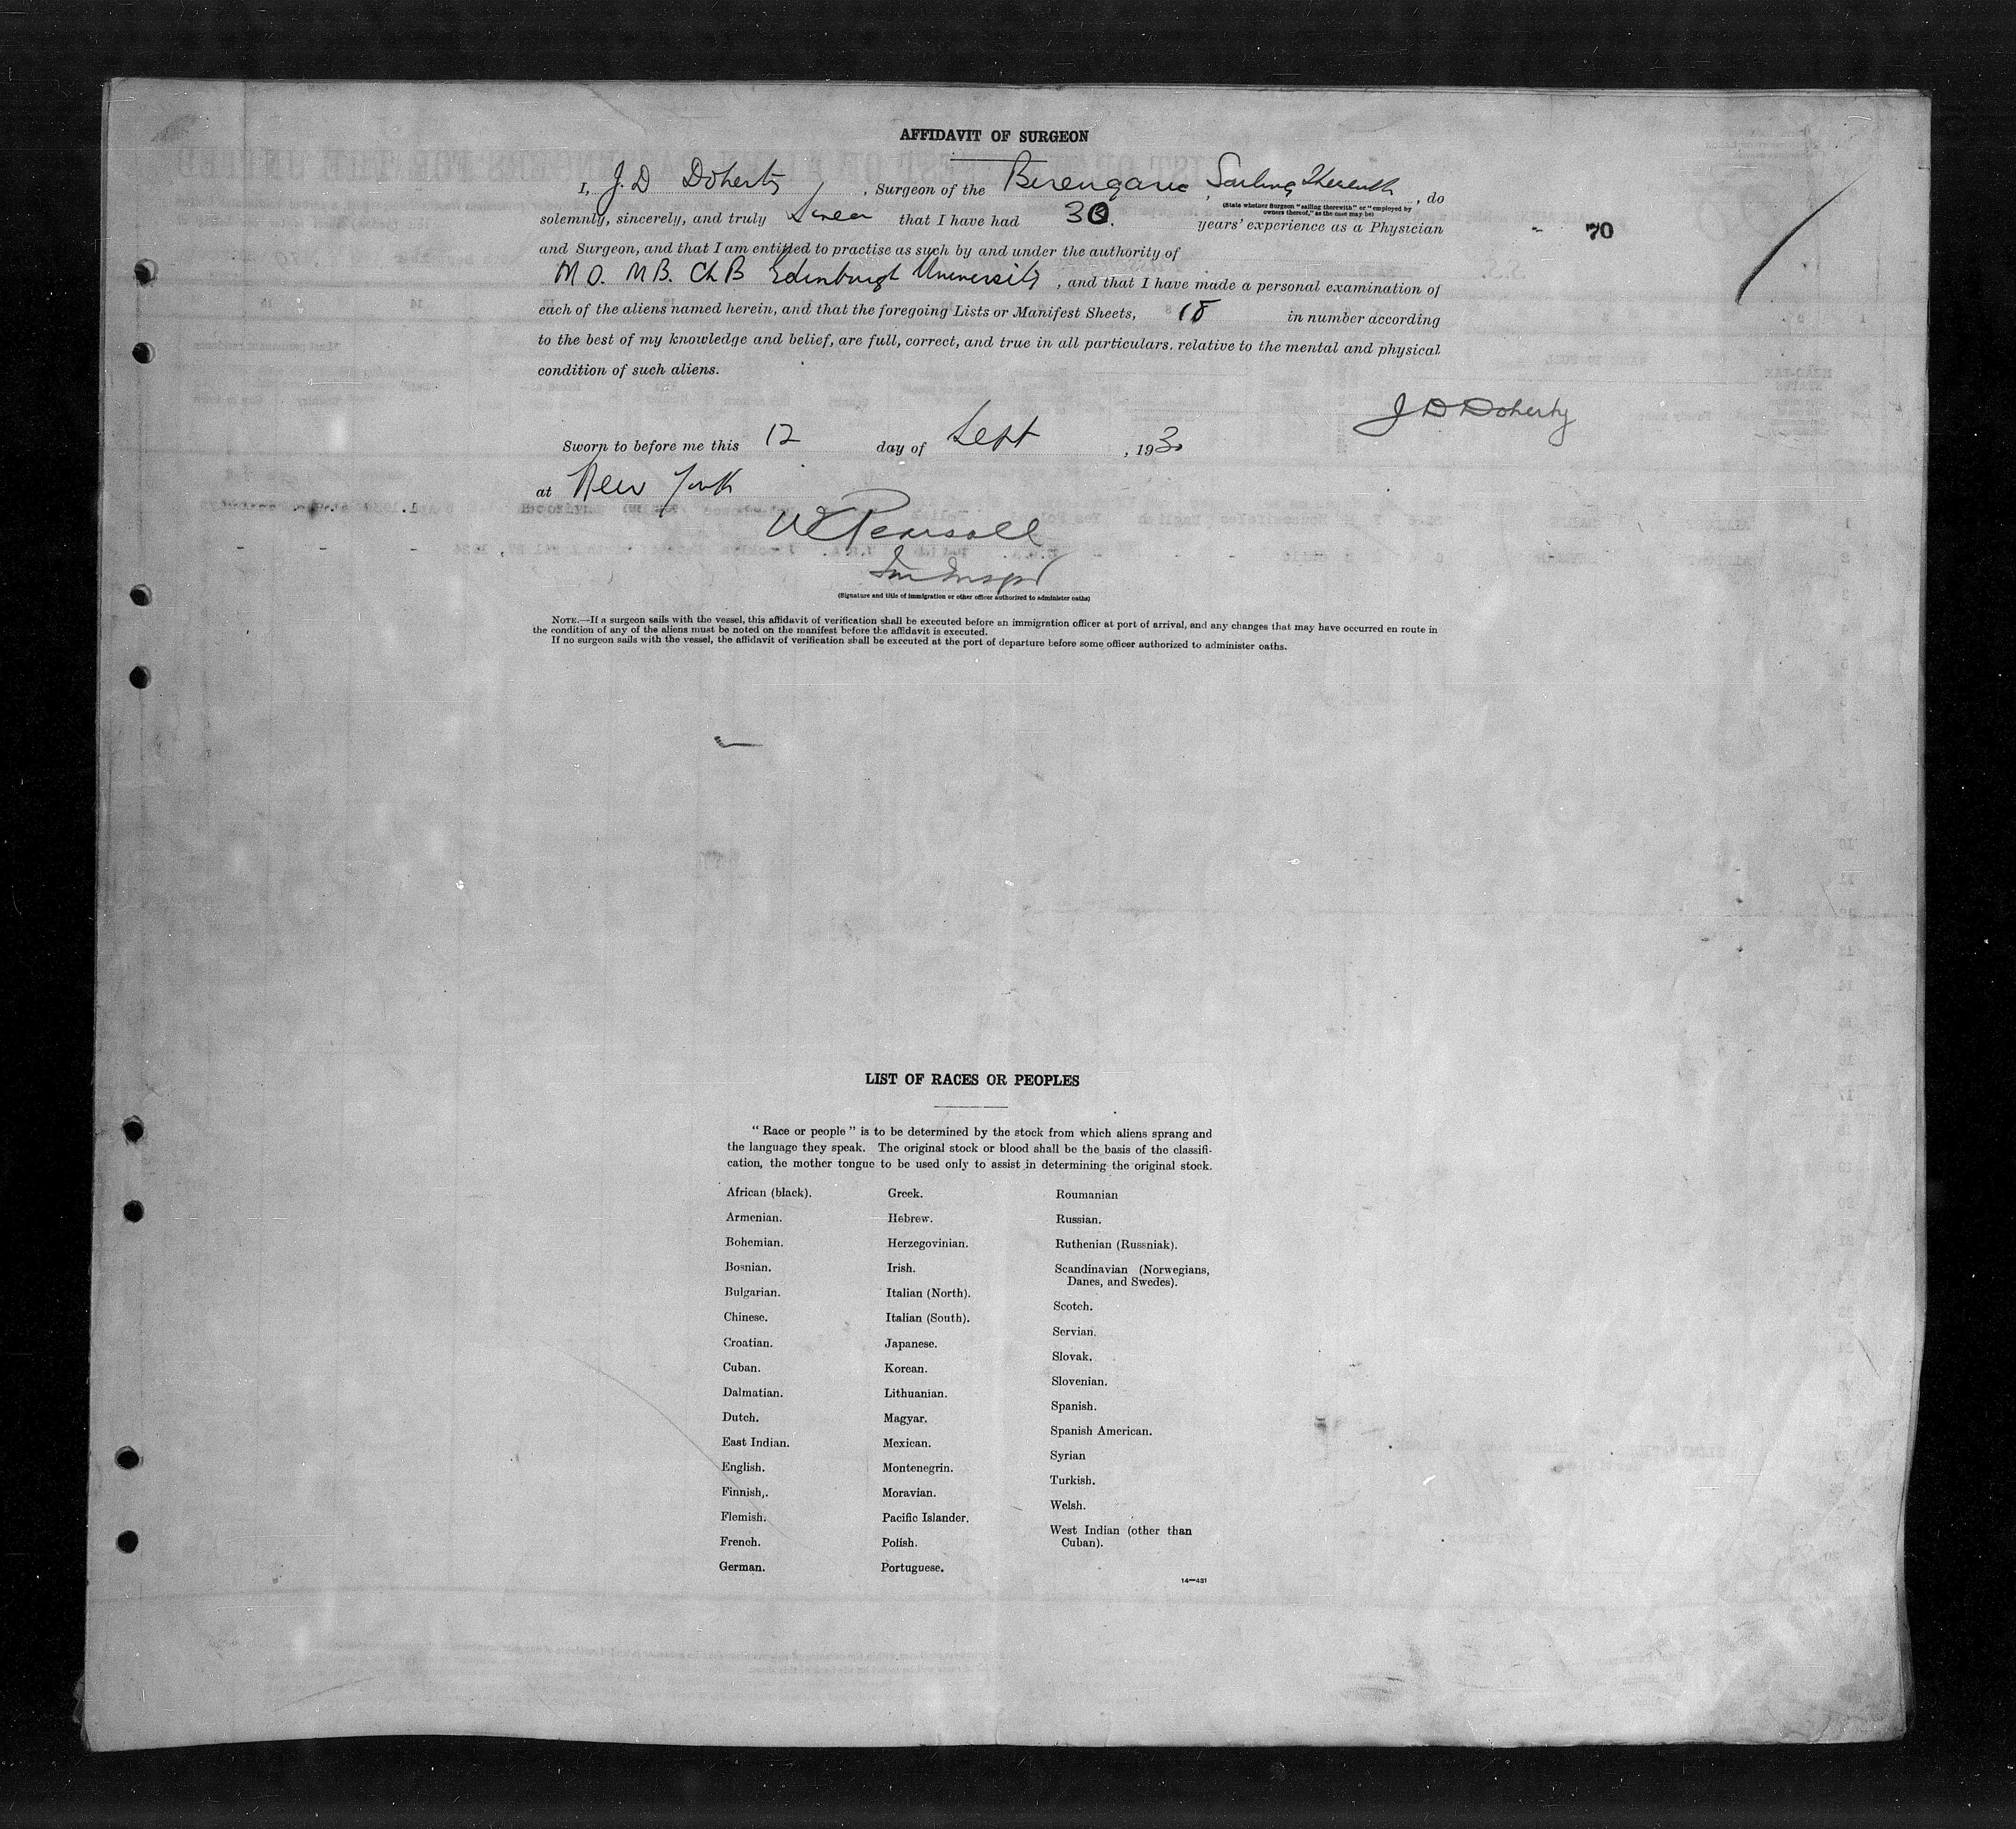 AFFIDAVIT OF SURGEON
I, J. D Doherty, Surgeon of the Berengaria, Sailing Therewith, do
(State whether Surgeon "sailing therewith" or "employed by
owners thereof," as the case may be)
solemnly, sincerely, and truly Swear that I have had 30. years' experience as a Physician
70
and Surgeon, and that I am entitled to practise as such by and under the authority of
M D. M B. Ch B Edinburgh University, and that I have made a personal examination of
each of the aliens named herein, and that the foregoing Lists or Manifest Sheets, 18 in number according
to the best of my knowledge and belief, are full, correct, and true in all particulars, relative to the mental and physical
condition of such aliens.
J D Doherty
Sworn to before me this 12 day of Sept, 1930
at New York
W Pearsall
Im Inspr
(Signature and title of immigration or other officer authorized to administer oaths)
NOTE.—If a surgeon sails with the vessel, this affidavit of verification shall be executed before an immigration officer at port of arrival, and any changes that may have occurred en route in
the condition of any of the aliens must be noted on the manifest before the affidavit is executed.
If no surgeon sails with the vessel, the affidavit of verification shall be executed at the port of departure before some officer authorized to administer oaths.
LIST OF RACES OR PEOPLES
"Race or people" is to be determined by the stock from which aliens sprang and
the language they speak. The original stock or blood shall be the basis of the classifi-
cation, the mother tongue to be used only to assist in determining the original stock.
African (black).
Armenian.
Bohemian.
Bosnian.
Bulgarian.
Chinese.
Croatian.
Cuban.
Dalmatian.
Dutch.
East Indian.
English.
Finnish,.
Flemish.
French.
German.
Greek.
Hebrew.
Herzegovinian.
Irish.
Italian (North).
Italian (South).
Japanese.
Korean.
Lithuanian.
Magyar.
Mexican.
Montenegrin.
Moravian.
Pacific Islander.
Polish.
Portuguese.
Roumanian
Russian.
Ruthenian (Russniak).
Scandinavian (Norwegians,
Danes, and Swedes).
Scotch.
Servian.
Slovak.
Slovenian.
Spanish.
Spanish American.
Syrian
Turkish.
Welsh.
West Indian (other than
Cuban).
14—431